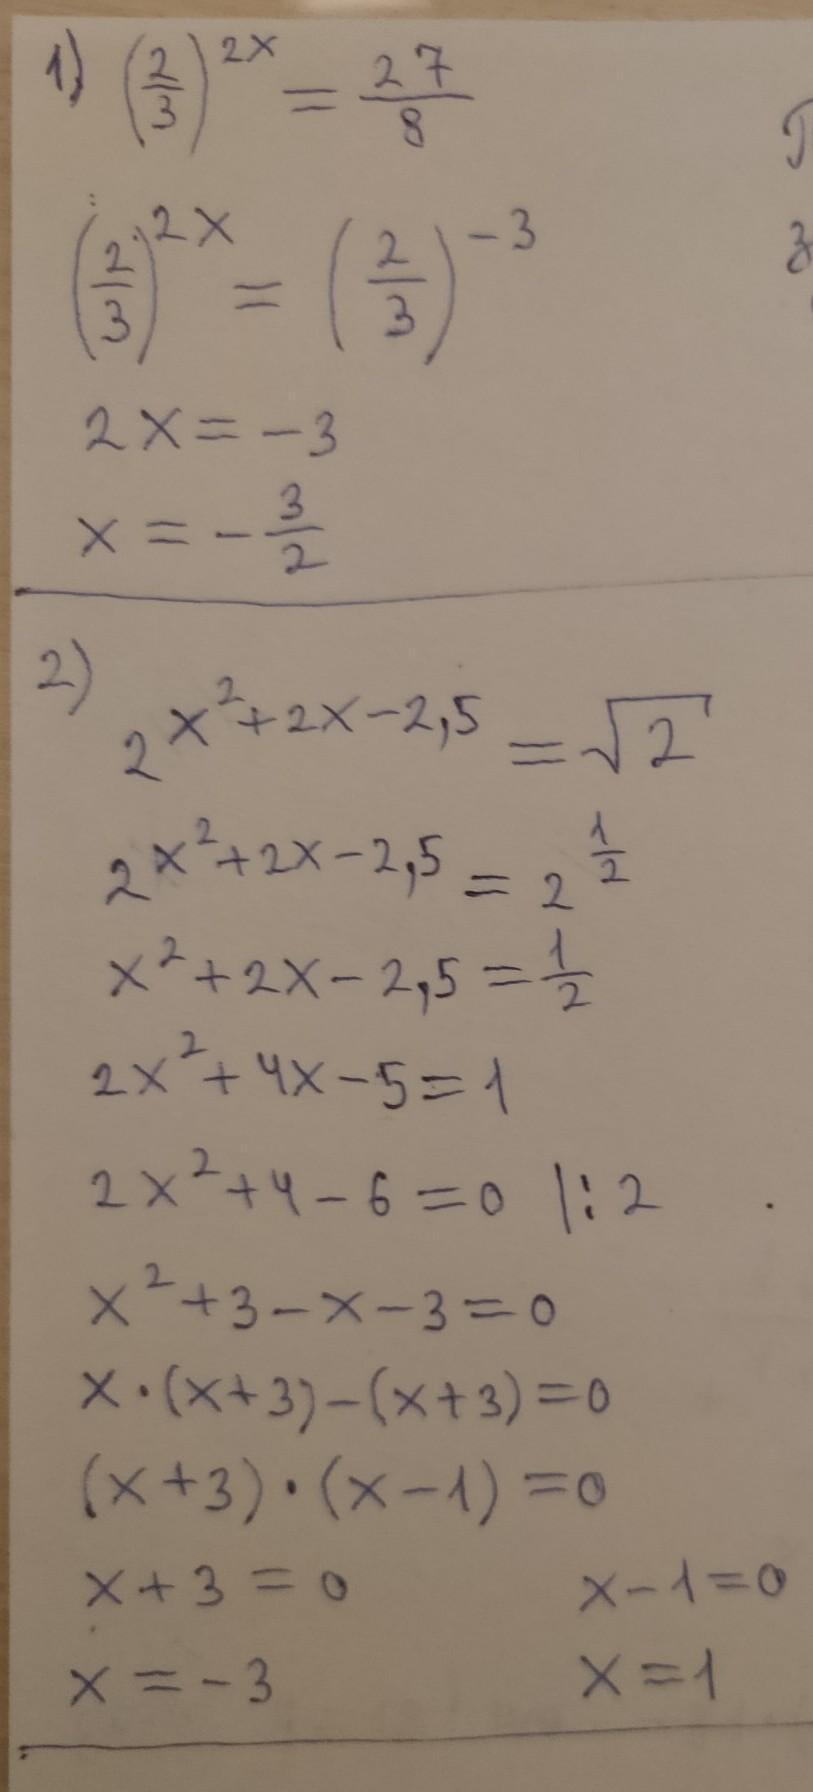 1) (2/3)^2x = 27/8
(2/3)^2x = (2/3)^-3
2x = -3
x = -3/2
2) 2^x²+2x-2,5 = √2
2^x²+2x-2,5 = 2^1/2
x²+2x-2,5 = 1/2
2x²+4x-5=1
2x²+4-6=0 |:2
x²+3-x-3=0
x·(x+3)-(x+3)=0
(x+3)·(x-1)=0
x+3=0 x-1=0
x=-3 x=1